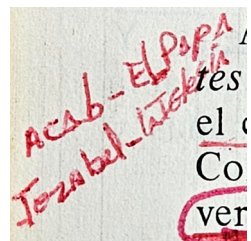 Acab - El Papa
Jezabel - Iglesia
tés
el c
Co
ver